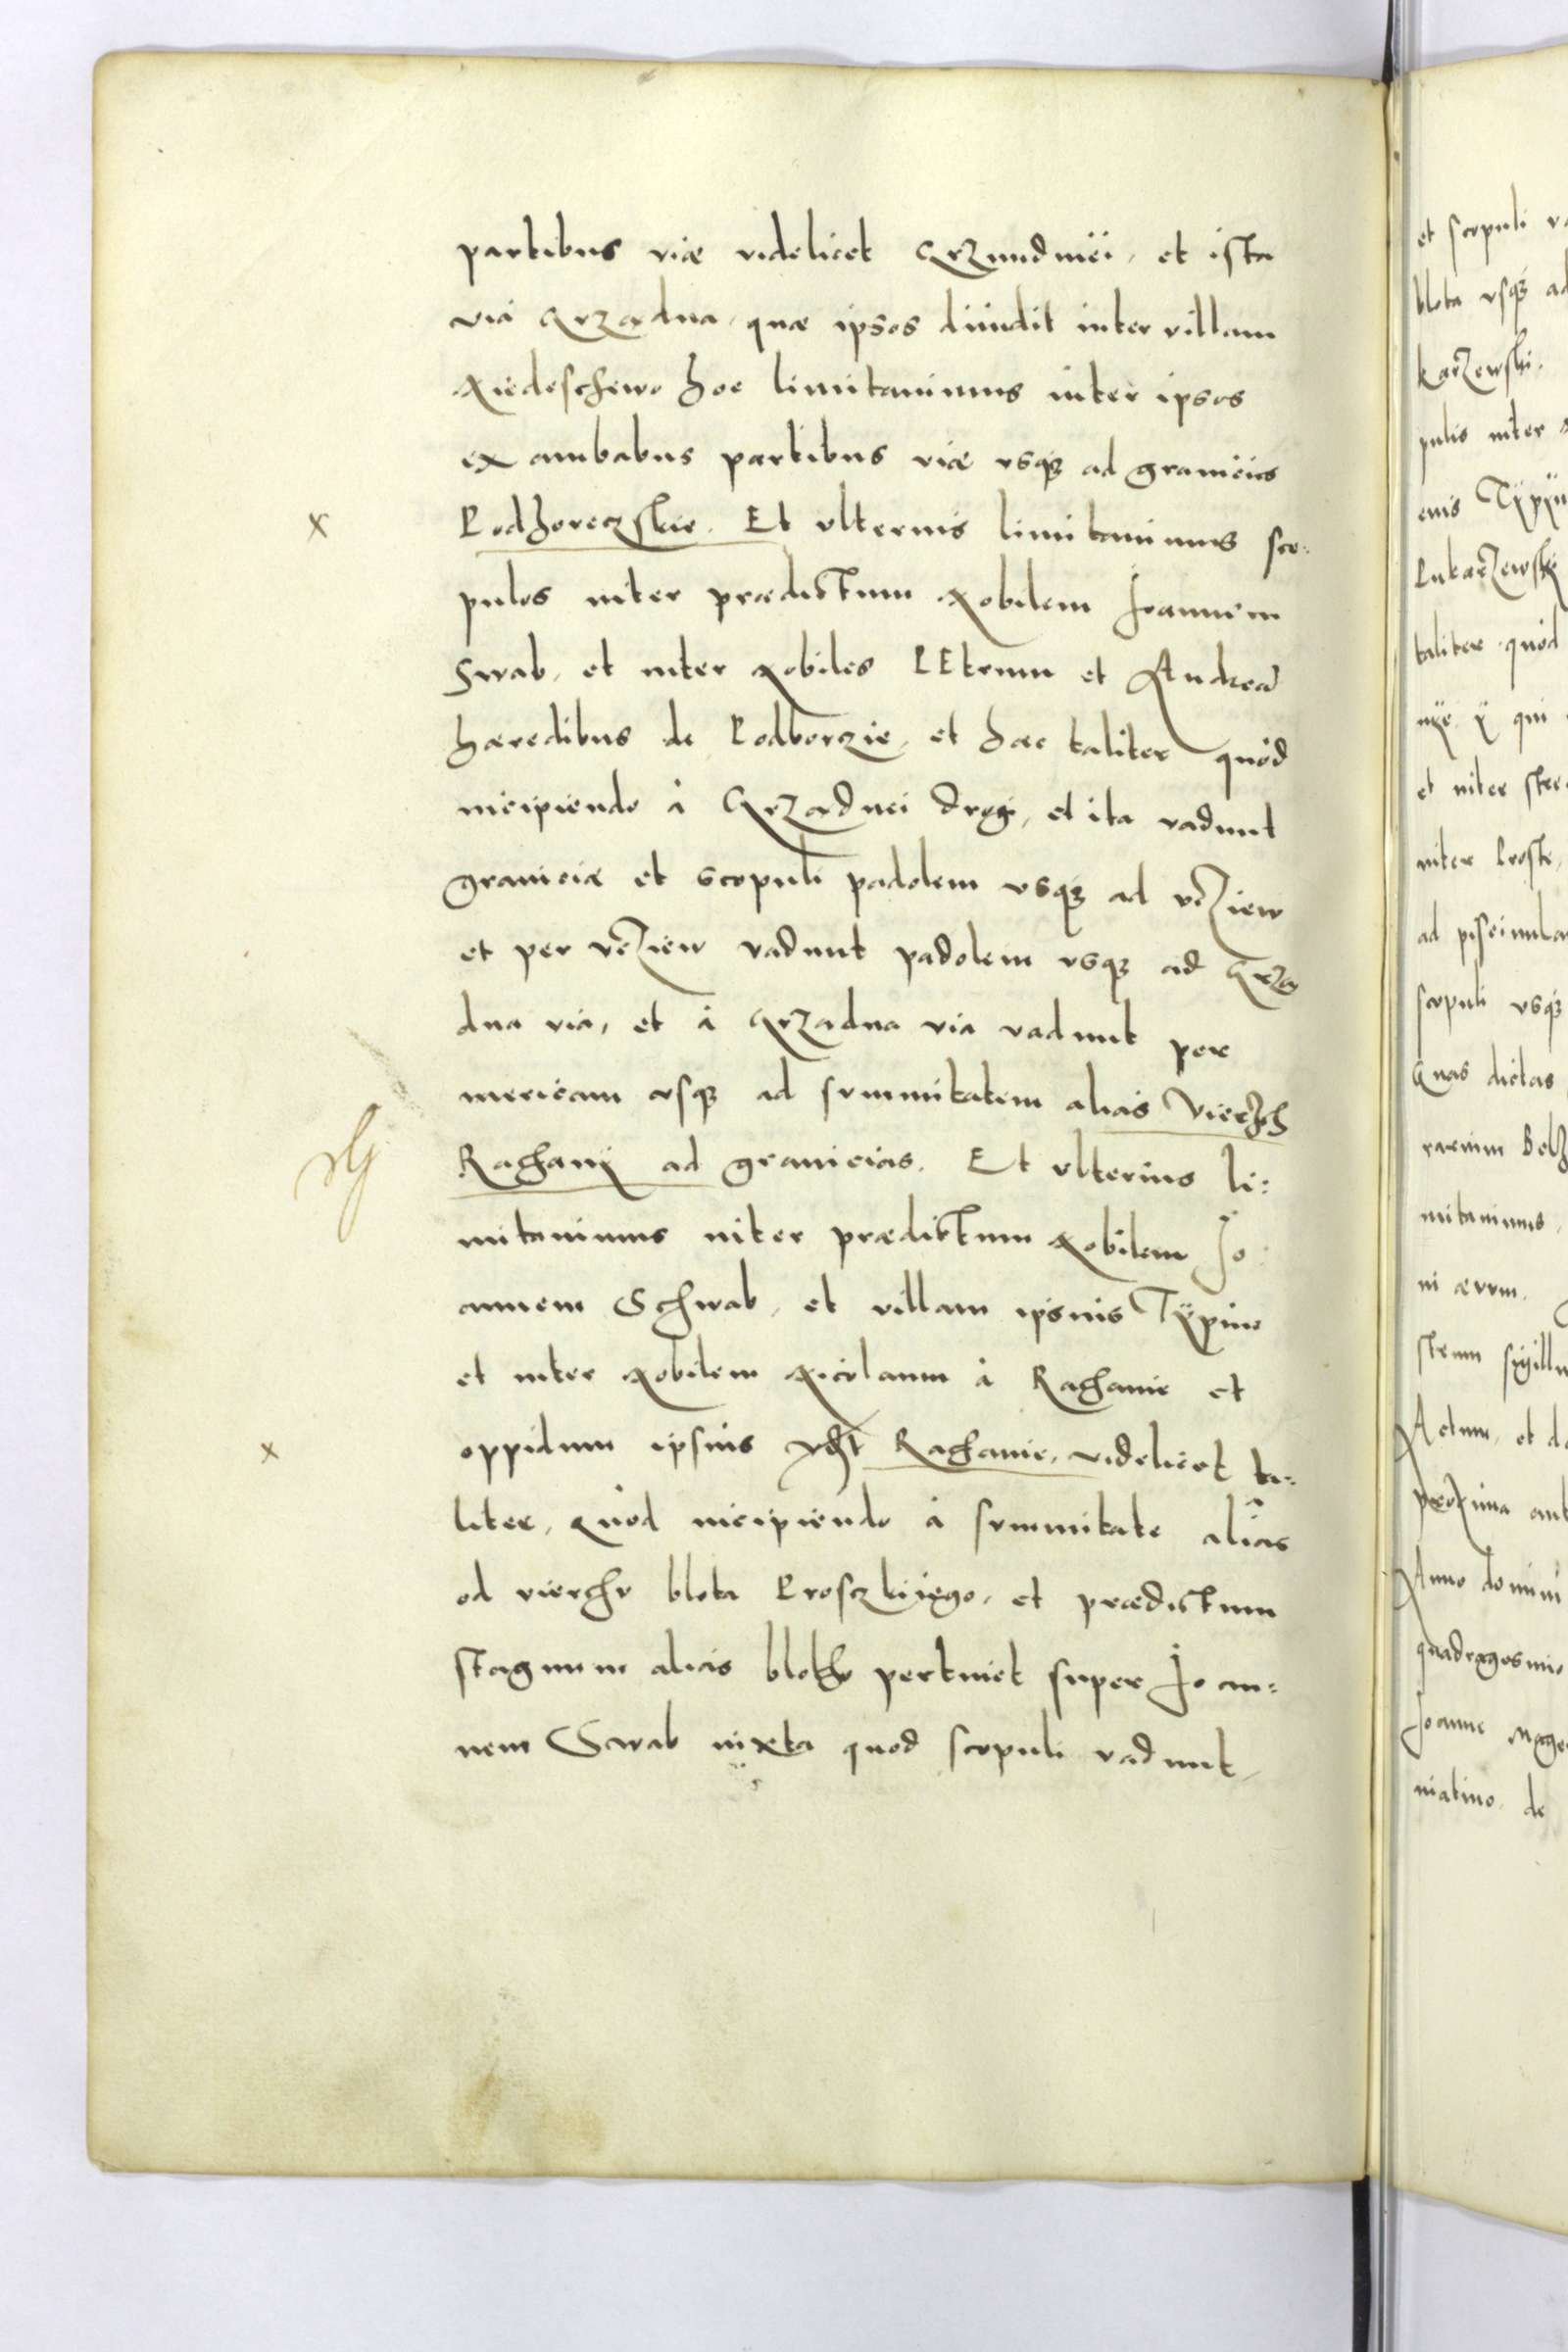 partibus viæ videlicet Grzundniei, et ista
via Grzadna, quæ ipsos diuidit inter villam
Niedeschewo hoc limitauimus inter ipsos
ex ambabus partibus viæ vsq3 ad granicies
x
Podhoreczskie. Et vlterius limitauimus sco:
pulos inter prædictum Nobilem Joannem
Swab, et inter Nobiles PEtrum et Andreã
hæredibus de Podborzie, et hæc taliter quòd
incipiendo à Grzadnei drogi, et ita vadunt
graniciæ et scopuli padolem vsq3 ad
et per vadunt padolem vsq3 ad Grza
dna via, et à Grzadna via vadunt per
mericam vsq3 ad summitatem aliàs Vierzch
Rachani ad granicias. Et vlterius li:
mitauimus inter prædictum Nobilem Jo
annem Schwab, et villam ipsius Tÿpino
et inter Nobilem Nicolaum à Rachanie et
x
oppidum ipsius Rachanie, videlicet ta:
liter, quòd incipiendo à summitate aliàs
od vierchv blota Prosczkijego, et prædictum
stagnum aliàs blotho pertinet super Joan:
nem Swab iuxta quod scopuli vadunt,
et scopuli
blota vsq3 ad
Karzewski.
pulis inter
Lukarzewski
taliter quòd
qui
et inter
inter Proste,
scopuli vsq3
Quas dictas
mitauimus,
Actum, et
proxima
Anno domini
quadragesimo
Joanne
de